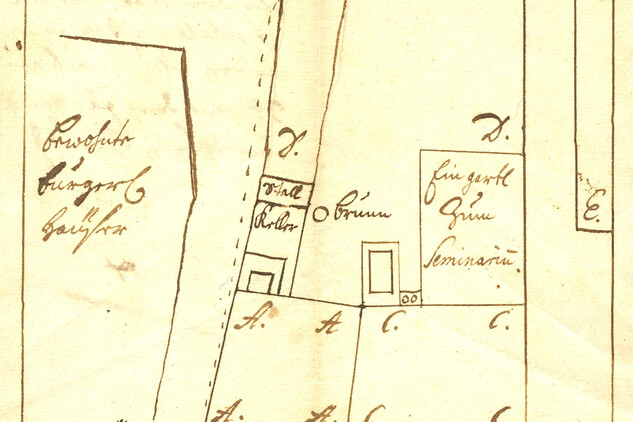 bewohnte
bürgerl
Häußer
D.
Stall
Keller
brunn
D.
Ein gartl
Zum
Seminariu.
E.
A. A C. C.
A. A. C C